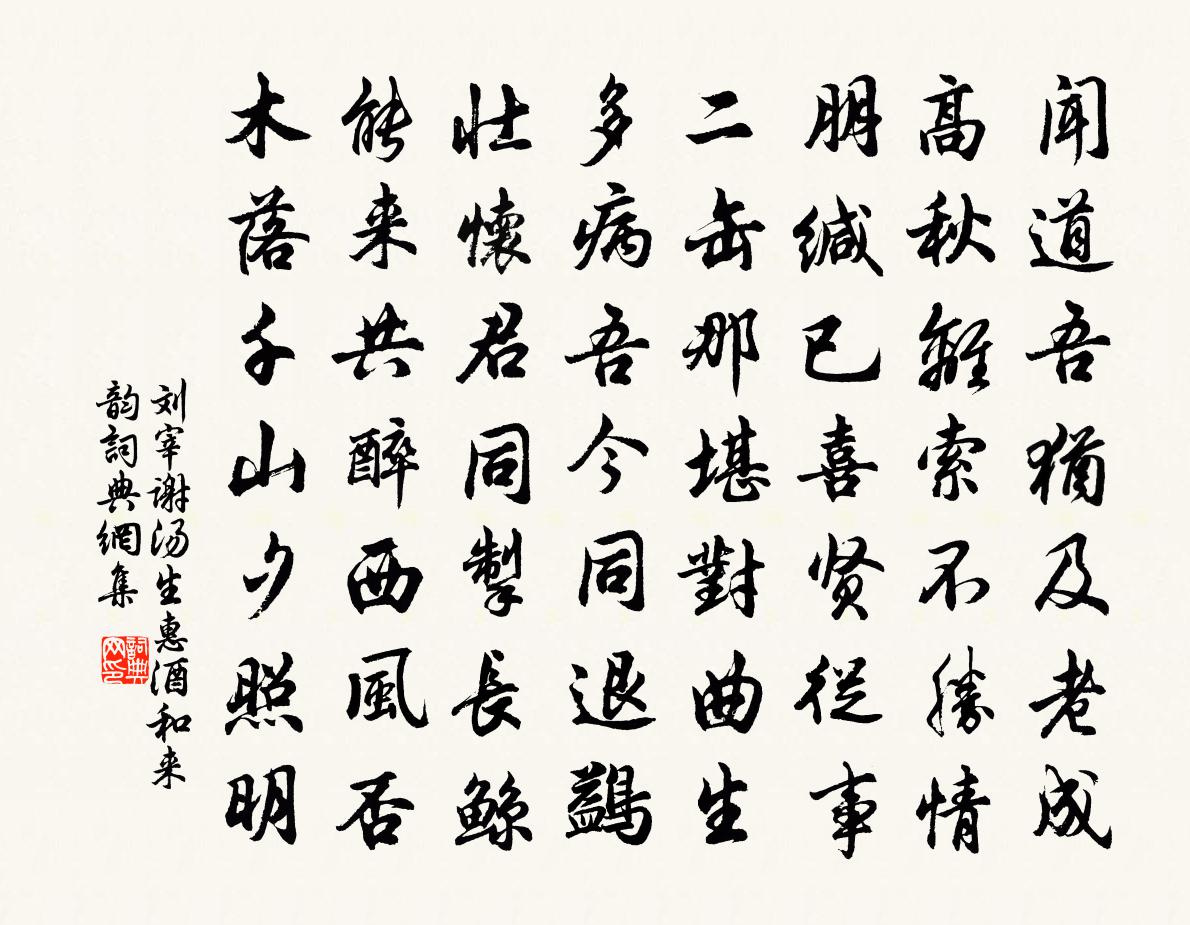 闻道吾犹及老成
高秋離索不勝情
朋缄已喜贤從事
二缶那堪對曲生
多病吾今同退鷁
壮懷君同掣長鲸
能来共醉西風否
木落千山夕照明
刘宰谢汤生惠酒和来
韵詞典網集
詞典网印